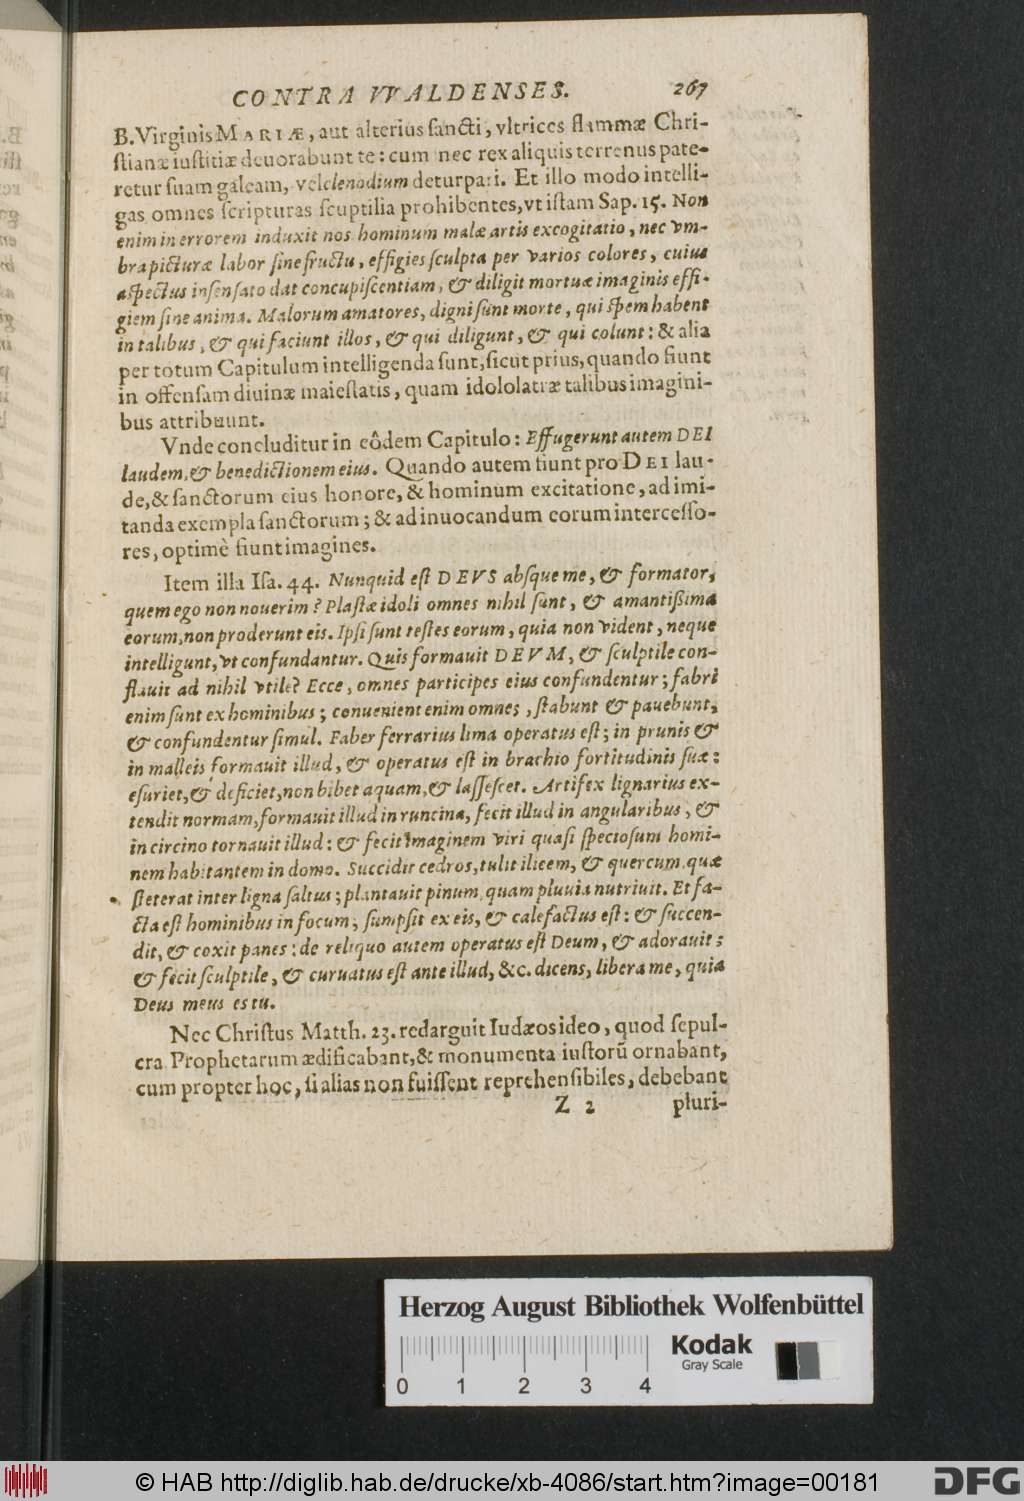 CONTRA VVALDENSES. 267
B. Virginis MARIÆ, aut alterius ſancti, vltrices flammæ Chri-
ſtianæ iuſtitiæ deuorabunt te: cum nec rex aliquis terrenus pate-
retur ſuam galeam, vel clenodium deturpari. Et illo modo intelli-
gas omnes ſcripturas ſculptilia prohibentes, vt iſtam Sap. 15. Non
enim in errorem induxit nos hominum malæ artis excogitatio, nec vm-
bra picturæ labor ſine fructu, effigies ſculpta per varios colores, cuius
aſpectus inſenſato dat concupiſcentiam, & diligit mortuæ imaginis effi-
giem ſine anima. Malorum amatores, digni ſunt morte, qui ſpem habent
in talibus, & qui faciunt illos, & qui diligunt, & qui colunt: & alia
per totum Capitulum intelligenda ſunt, ſicut prius, quando fiunt
in offenſam diuinæ maieſtatis, quam idololatræ talibus imagini-
bus attribuunt.
Vnde concluditur in eôdem Capitulo: Effugerunt autem DEI
laudem, & benedictionem eius. Quando autem fiunt pro DEI lau-
de, & ſanctorum eius honore, & hominum excitatione, ad imi-
tanda exempla ſanctorum; & ad inuocandum eorum interceſſo-
res, optimè fiunt imagines.
Item illa Iſa. 44. Nunquid eſt DEVS abſque me, & formator,
quem ego non nouerim? Plaſtæ idoli omnes nihil ſunt, & amantißima
eorum, non proderunt eis. Ipſi ſunt teſtes eorum, quia non vident, neque
intelligunt, vt confundantur. Quis formauit DEVM, & ſculptile con-
flauit ad nihil vtile? Ecce, omnes participes eius confundentur; fabri
enim ſunt ex hominibus; conuenient enim omnes, ſtabunt & pauebunt,
& confundentur ſimul. Faber ferrarius lima operatus eſt; in prunis &
in malleis formauit illud, & operatus eſt in brachio fortitudinis ſuæ:
eſuriet, & deficiet, non bibet aquam, & laſſeſcet. Artifex lignarius ex-
tendit normam, formauit illud in runcina, fecit illud in angularibus, &
in circino tornauit illud: & fecit imaginem viri quaſi ſpectoſum homi-
nem habitantem in domo. Succidit cedros, tulit ilicem, & quercum, quæ
ſteterat inter ligna ſaltus; plantauit pinum, quam pluuia nutriuit. Et fa-
cta eſt hominibus in focum, ſumpſit ex eis, & calefactus eſt: & ſuccen-
dit, & coxit panes: de reliquo autem operatus eſt Deum, & adorauit;
& fecit ſculptile, & curuatus eſt ante illud, &c. dicens, libera me, quia
Deus meus es tu.
Nec Chriſtus Matth. 23. redarguit Iudæos ideo, quod ſepul-
cra Prophetarum ædificabant, & monumenta iuſtorũ ornabant,
cum propter hoc, ſi alias non fuiſſent reprehenſibiles, debebant
Z 2 pluri-
Herzog August Bibliothek Wolfenbüttel
Kodak
Gray Scale
0 1 2 3 4
© HAB http://diglib.hab.de/drucke/xb-4086/start.htm?image=00181
DFG